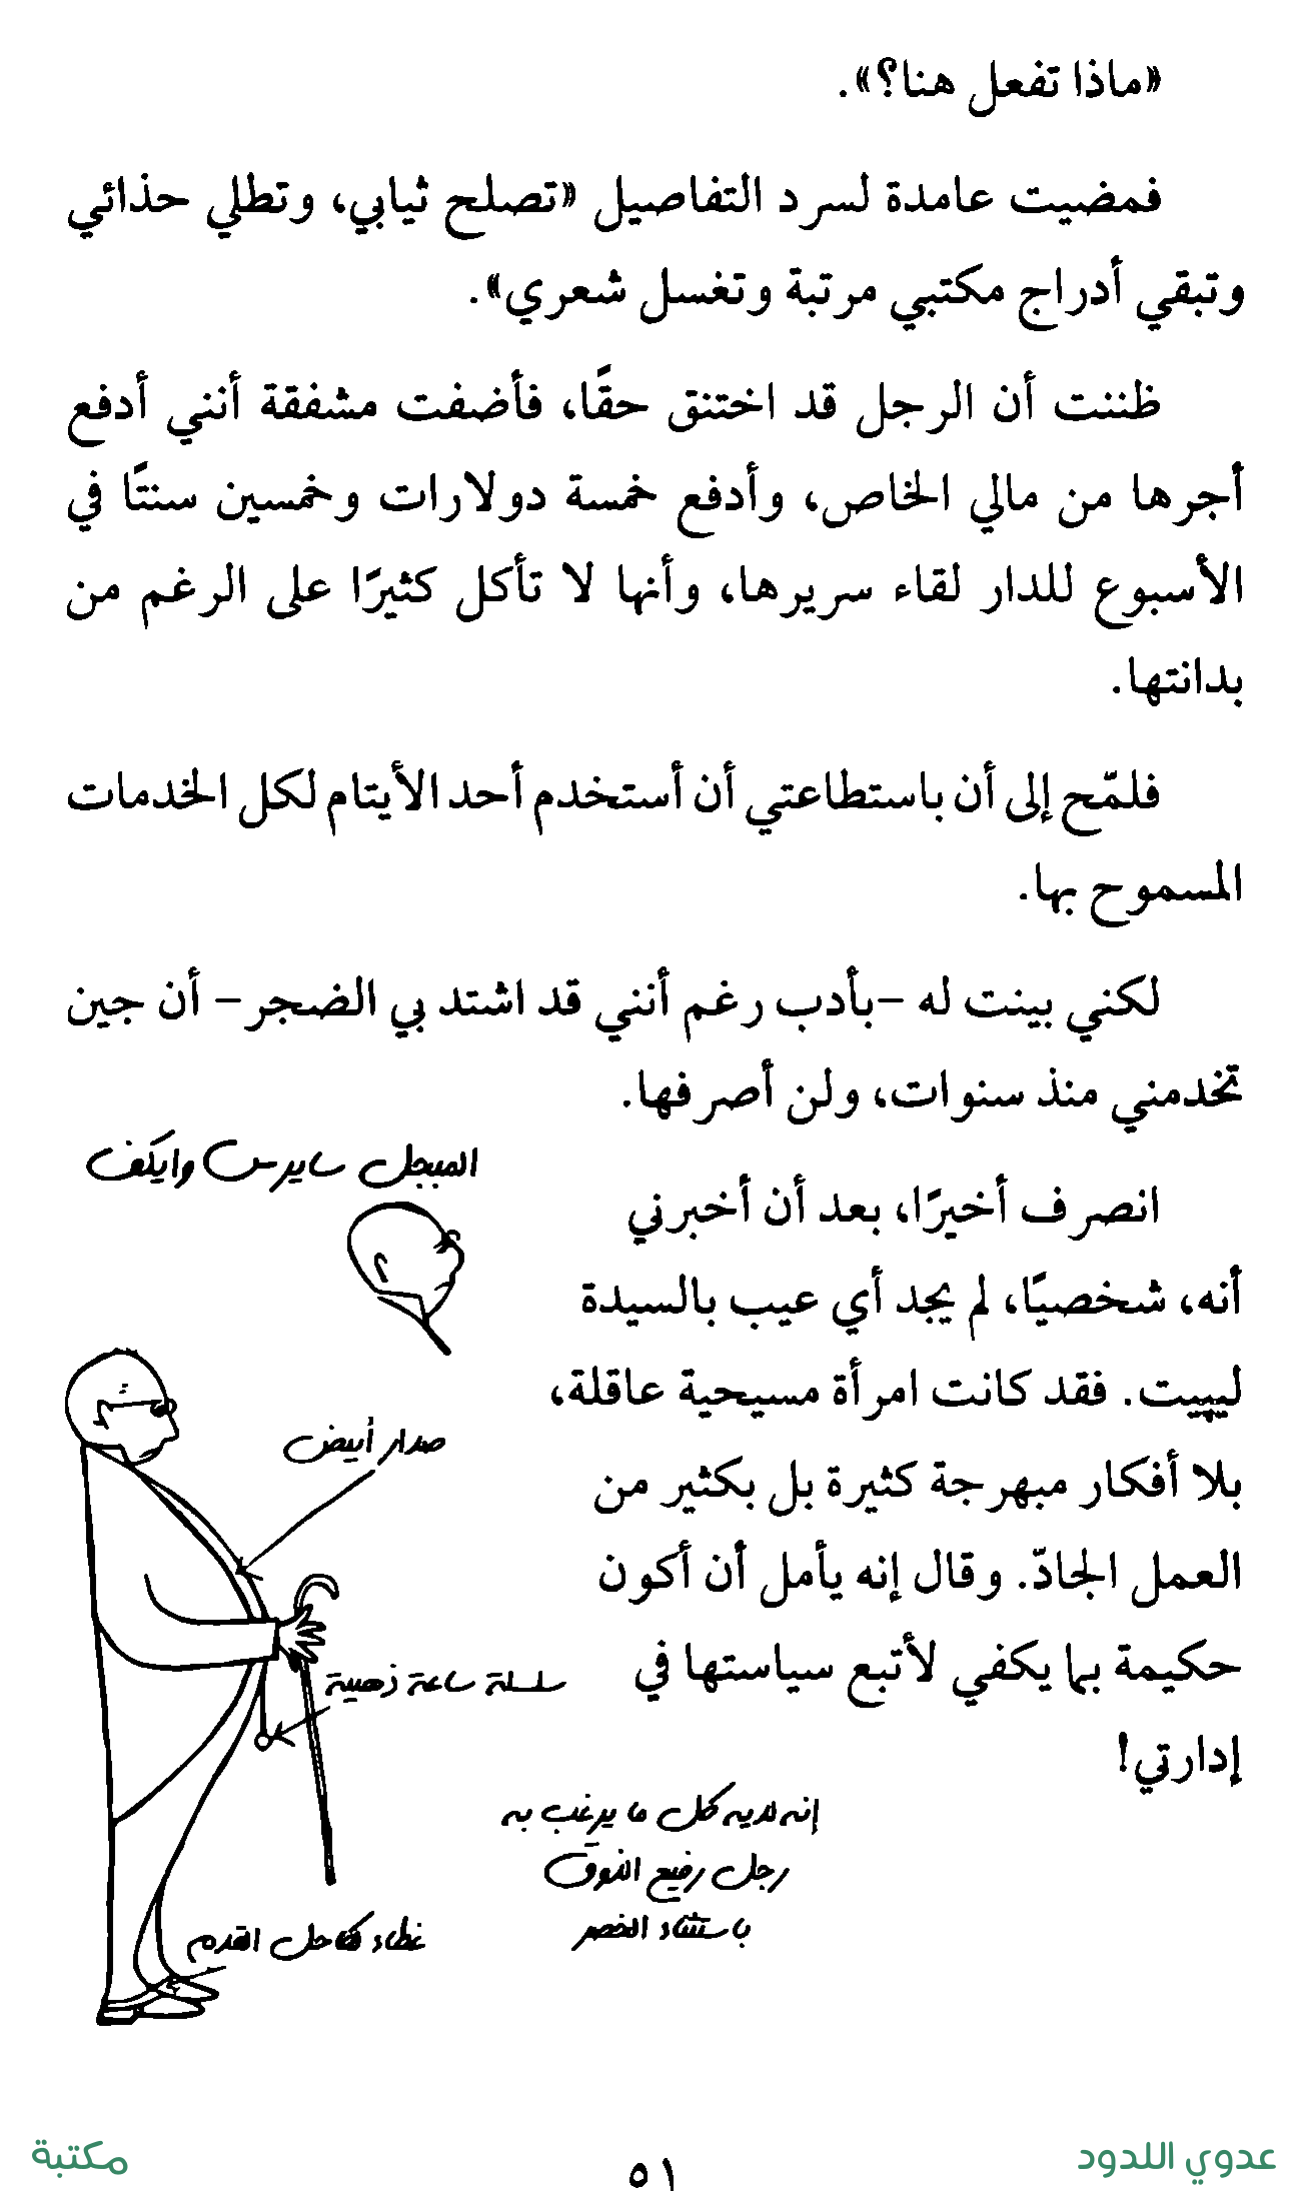 «ماذا تفعل هنا؟».
فمضيت عامدة لسرد التفاصيل «تصلح ثيابي، وتطلي حذائي
وتبقي أدراج مكتبي مرتبة وتغسل شعري».
ظننت أن الرجل قد اختنق حقًا، فأضفت مشفقة أنني أدفع
أجرها من مالي الخاص، وأدفع خمسة دولارات وخمسين سنتًا في
الأسبوع للدار لقاء سريرها، وأنها لا تأكل كثيرًا على الرغم من
بدانتها.
فلمّح إلى أن باستطاعتي أن أستخدم أحد الأيتام لكل الخدمات
المسموح بها.
لكني بينت له –بأدب رغم أنني قد اشتد بي الضجر– أن جين
تخدمني منذ سنوات، ولن أصرفها.
المبجل سايرس وايكف
انصرف أخيرًا، بعد أن أخبرني
أنه، شخصيًا، لم يجد أي عيب بالسيدة
ليپيت. فقد كانت امرأة مسيحية عاقلة،
بلا أفكار مبهرجة كثيرة بل بكثير من
العمل الجادّ. وقال إنه يأمل أن أكون
حكيمة بما يكفي لأتبع سياستها في
إدارتي!
صدار أبيض
سلسلة ساعة ذهبية
إنه لديه كل ما يرغب به
رجل رفيع الذوق
باستثناء الخصر
غطاء كاحل القدم
عدوي اللدود
٥١
مكتبة